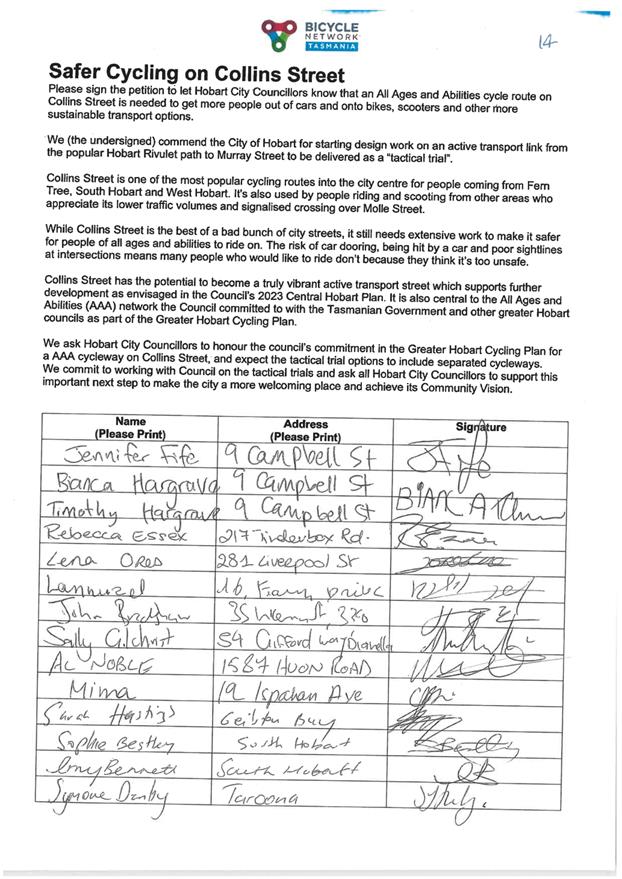 BICYCLE
NETWORK
TASMANIA
14
Safer Cycling on Collins Street
Please sign the petition to let Hobart City Councillors know that an All Ages and Abilities cycle route on
Collins Street is needed to get more people out of cars and onto bikes, scooters and other more
sustainable transport options.
We (the undersigned) commend the City of Hobart for starting design work on an active transport link from
the popular Hobart Rivulet path to Murray Street to be delivered as a "tactical trial".
Collins Street is one of the most popular cycling routes into the city centre for people coming from Fern
Tree, South Hobart and West Hobart. It's also used by people riding and scooting from other areas who
appreciate its lower traffic volumes and signalised crossing over Molle Street.
While Collins Street is the best of a bad bunch of city streets, it still needs extensive work to make it safer
for people of all ages and abilities to ride on. The risk of car dooring, being hit by a car and poor sightlines
at intersections means many people who would like to ride don't because they think it's too unsafe.
Collins Street has the potential to become a truly vibrant active transport street which supports further
development as envisaged in the Council's 2023 Central Hobart Plan. It is also central to the All Ages and
Abilities (AAA) network the Council committed to with the Tasmanian Government and other greater Hobart
councils as part of the Greater Hobart Cycling Plan.
We ask Hobart City Councillors to honour the council's commitment in the Greater Hobart Cycling Plan for
a AAA cycleway on Collins Street, and expect the tactical trial options to include separated cycleways.
We commit to working with Council on the tactical trials and ask all Hobart City Councillors to support this
important next step to make the city a more welcoming place and achieve its Community Vision.
Name (Please Print) Address (Please Print) Signature
Jennifer Fife 9 Campbell St
Bianca Hargrave 9 Campbell St
Timothy Hargrave 9 Campbell St
Rebecca Essex 217 Tinderbox Rd.
Lena 281 Liverpool St
16,
John 35
Sally Gilchrist 54 Clifford Way
AL NOBLE 1587 HUON ROAD
Mima 19 Ispahan Ave
Sarah Hastings Geilston Bay
Sophie Bestley South Hobart
Bennett South Hobart
Symone Danby Taroona